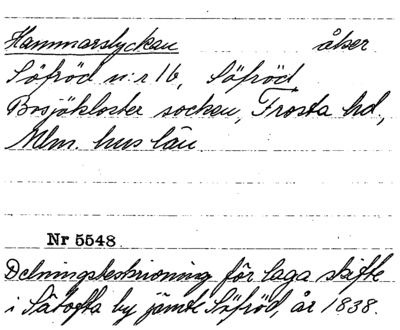 Hammarslyckan åker
Söfröd n:r 16, Söfröd,
Bosjökloster socken, Frosta hd.,
Mlm. hus län.
Nr 5548
Delningsbeskrivning för laga skifte
i Sätofta by jämte Söfröd, år 1838.